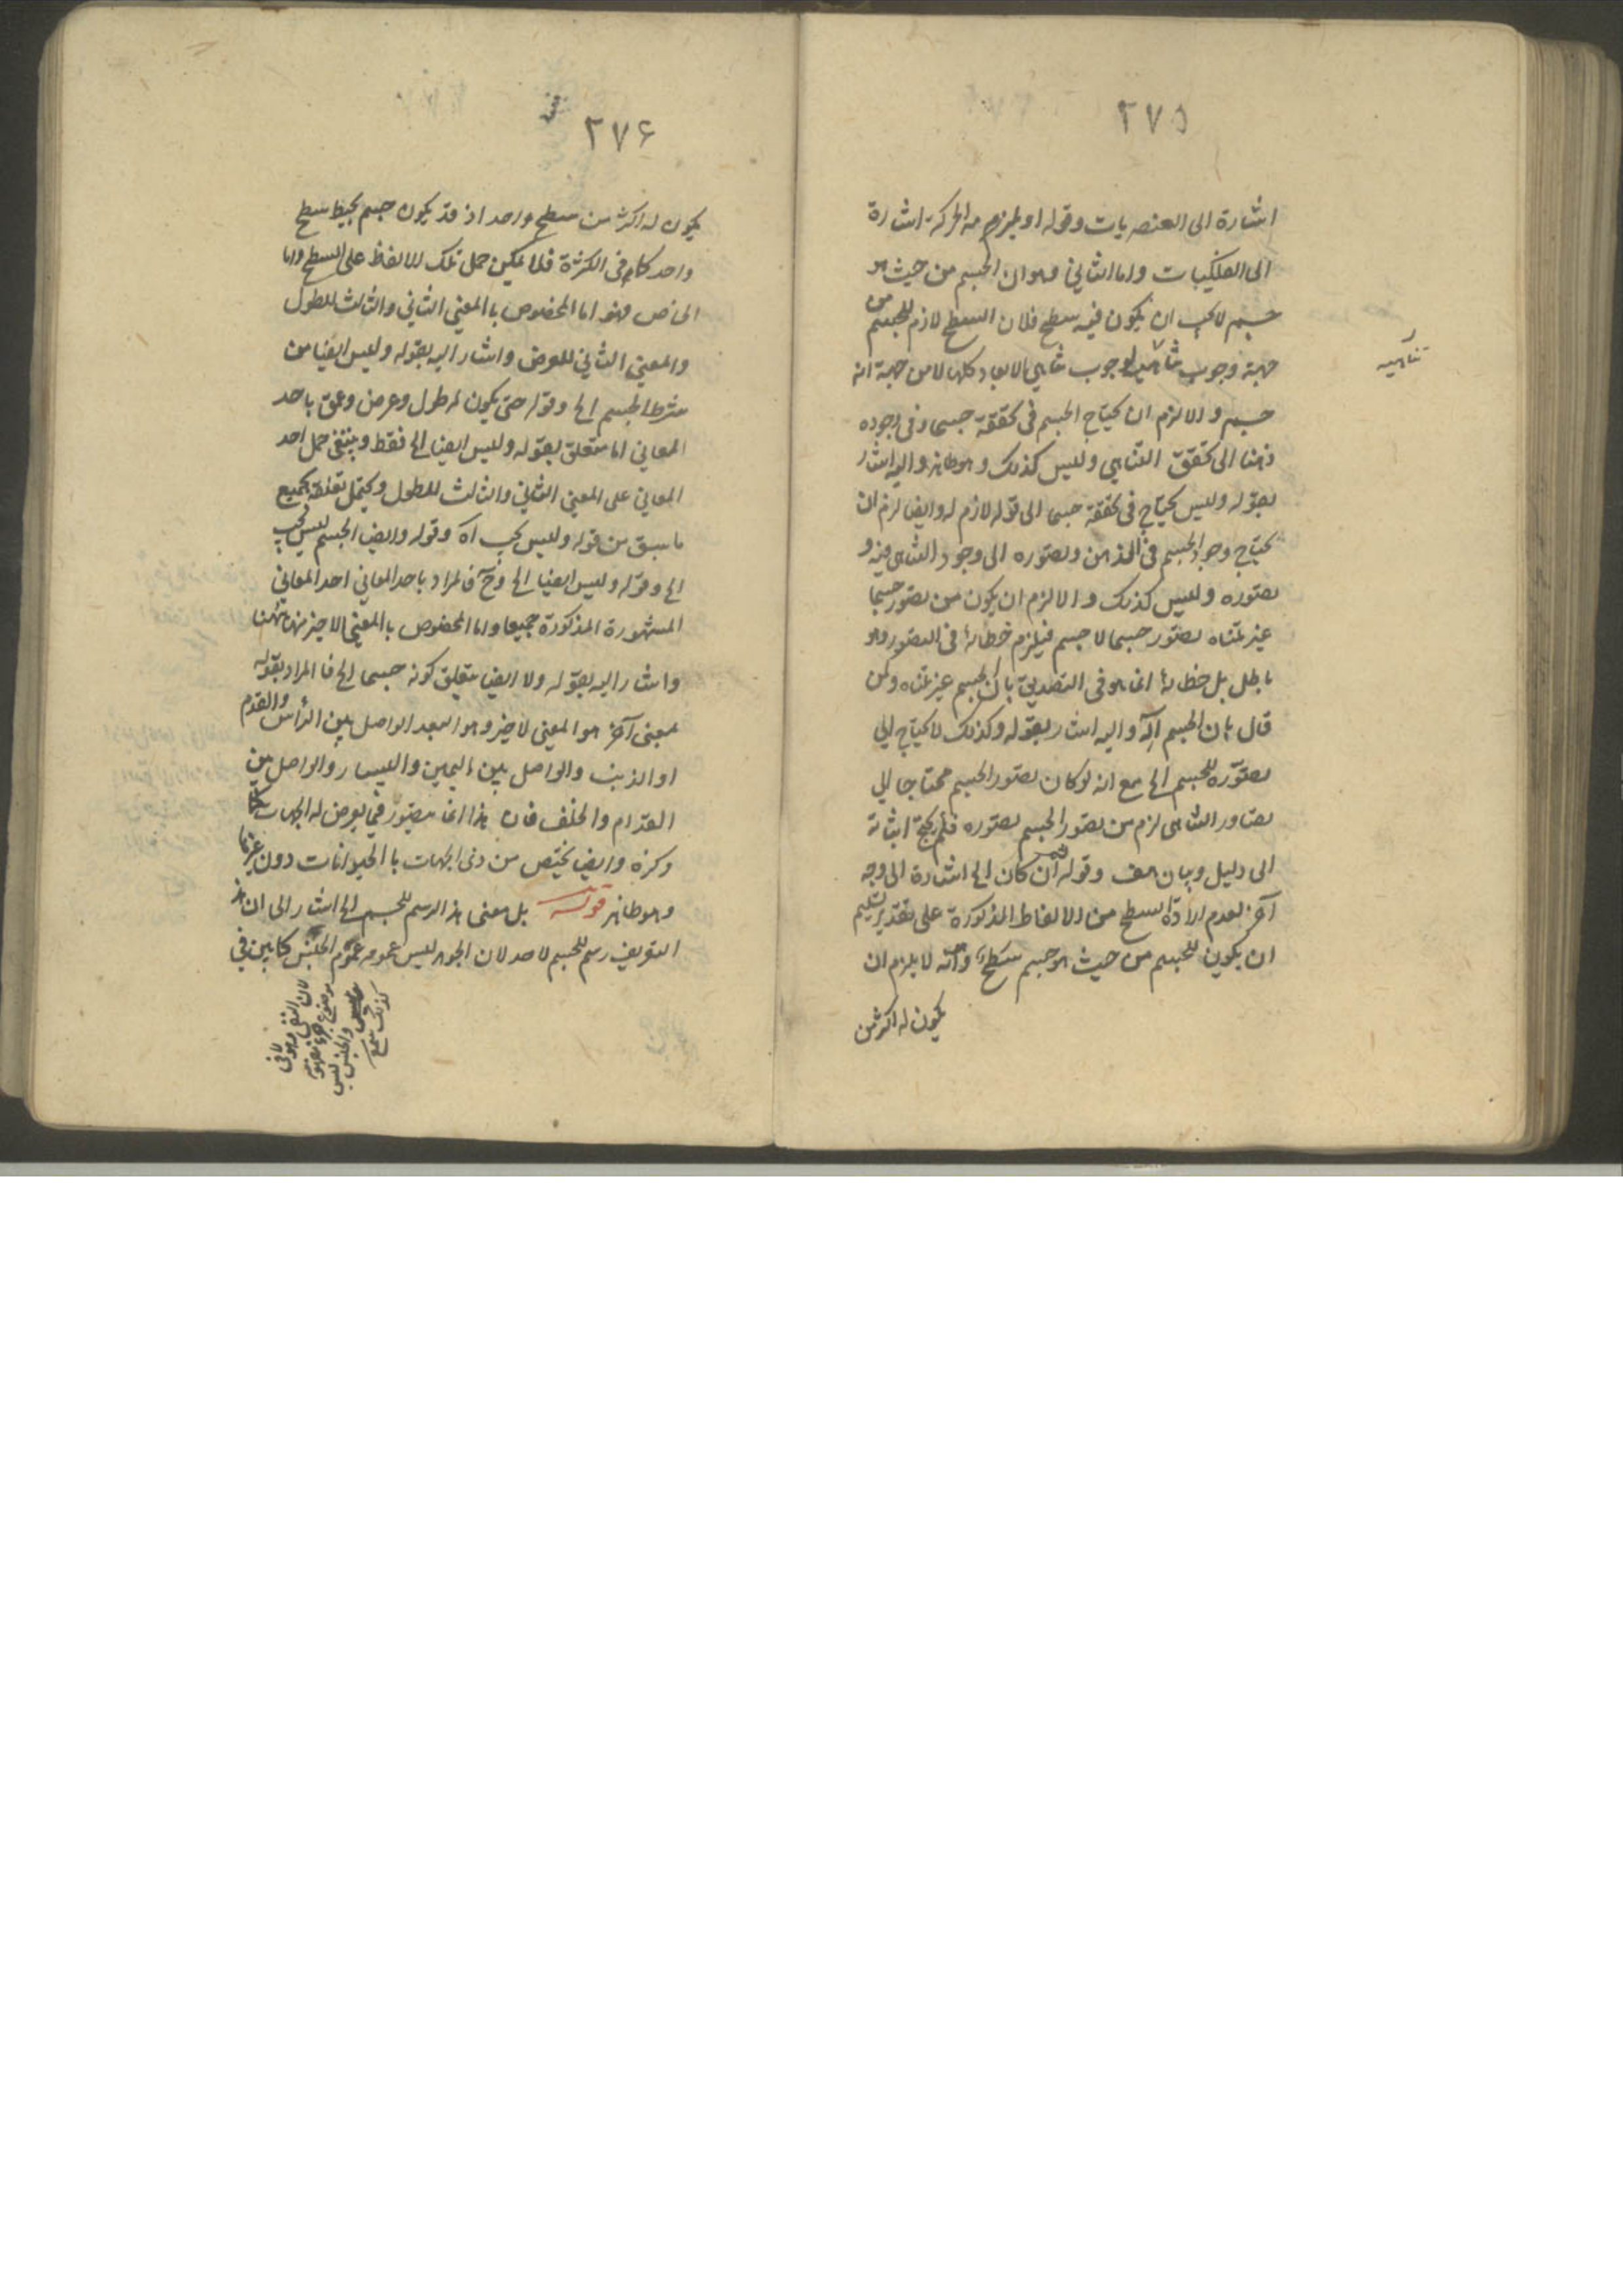 ٢٧٥
اشارة الى العنصريات وقوله او يلزمه الحركة اشارة
الى الفلكيات واما الثاني وهو ان الجسم من حيث هو
جسم لا يجب ان يكون فيه سطح فلان السطح لازم للجسم من
جهة وجوب تناهيه لوجوب تناهي الابعاد كلها لا من جهة انه
تناهيه
جسم والا لزم ان يحتاج الجسم فى تحققه جسما وفى وجوده
ذهنا الى تحقق التناهي وليس كذلك وهو ظاهر واليه اشار
بقوله وليس يحتاج فى تحققه جسما الى قوله لازم له وايضا لزم ان
يحتاج وجود الجسم فى الذهن وتصوره الى وجود التناهى فيه و
تصوره وليس كذلك والا لزم ان يكون من تصور جسما
غير متناه تصور جسما لا جسم فيلزم خطائه فى التصور وهو
باطل بل خطائه انما هو فى التصديق بان الجسم غير متناه وكمن
قال بان الجسم آلة واليه اشار بقوله وكذلك لا يحتاج الى
تصوره للجسم الخ مع انه لو كان تصور الجسم محتاجا الى
تصور التناهى لزم من تصور الجسم تصوره فلم يحتج اثباته
الى دليل وبيان هف وقوله ثم ان كان الخ اشارة الى وجه
آخر لعدم ارادة السطح من الالفاظ المذكورة على تقدير تسليم
ان يكون للجسم من حيث هو جسم سطح وهو انه لا يلزم ان
يكون له اكثر من
٢٧۶
يكون له اكثر من سطح واحد اذ قد يكون جسم يحيط سطح
واحد كما فى الكرة فلا يمكن حمل تلك الالفاظ على السطح واما
الخاص فهو اما المخصوص بالمعنى الثاني والثالث للطول
والمعنى الثاني للعرض واشار اليه بقوله وليس ايضا من
شرط الجسم الخ وقوله حتى يكون له طول وعرض وعمق باحد
المعاني اما متعلق بقوله وليس ايضا الخ فقط وينبغى حمل احد
المعاني على المعنى الثاني والثالث للطول ويحتمل تعلقه بجميع
ما سبق من قوله وليس يجب اه وقوله وايضا الجسم ليس يجب
الخ وقوله وليس ايضا الخ وح فالمراد باحد المعاني احد المعاني
المشهورة المذكورة جميعا واما المخصوص بالمعنى الاخير منها ههنا
واشار اليه بقوله ولا ايضا يتعلق كونه جسما الخ فالمراد بقوله
بمعنى آخر هو المعنى الاخير وهو البعد الواصل بين الرأس والقدم
او الذنب والواصل بين اليمين واليسار والواصل بين
القدام والخلف فان هذا انما يتصور فيما يعرض له الجهات
وكرة وايضا يختص من ذى الجهات بالحيوانات دون غيرها
وهو ظاهر قوله بل معنى هذا الرسم للجسم الخ اشار الى ان هذا
التعريف رسم للجسم لا حد لان الجوهر ليس عمومه عموم الجنس كما بين فى